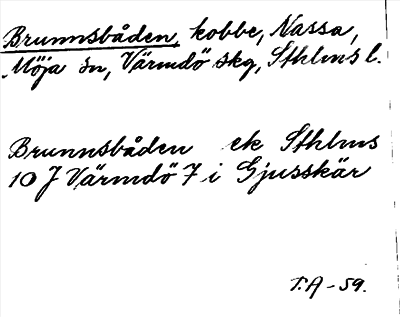 Brunnsbåden, kobbe, Nassa,
Möja sn, Värmdö skg, Sthlms l.
Brunnsbåden ek Sthlms
10 J Värmdö 7 i Gjusskär
T.A-59.